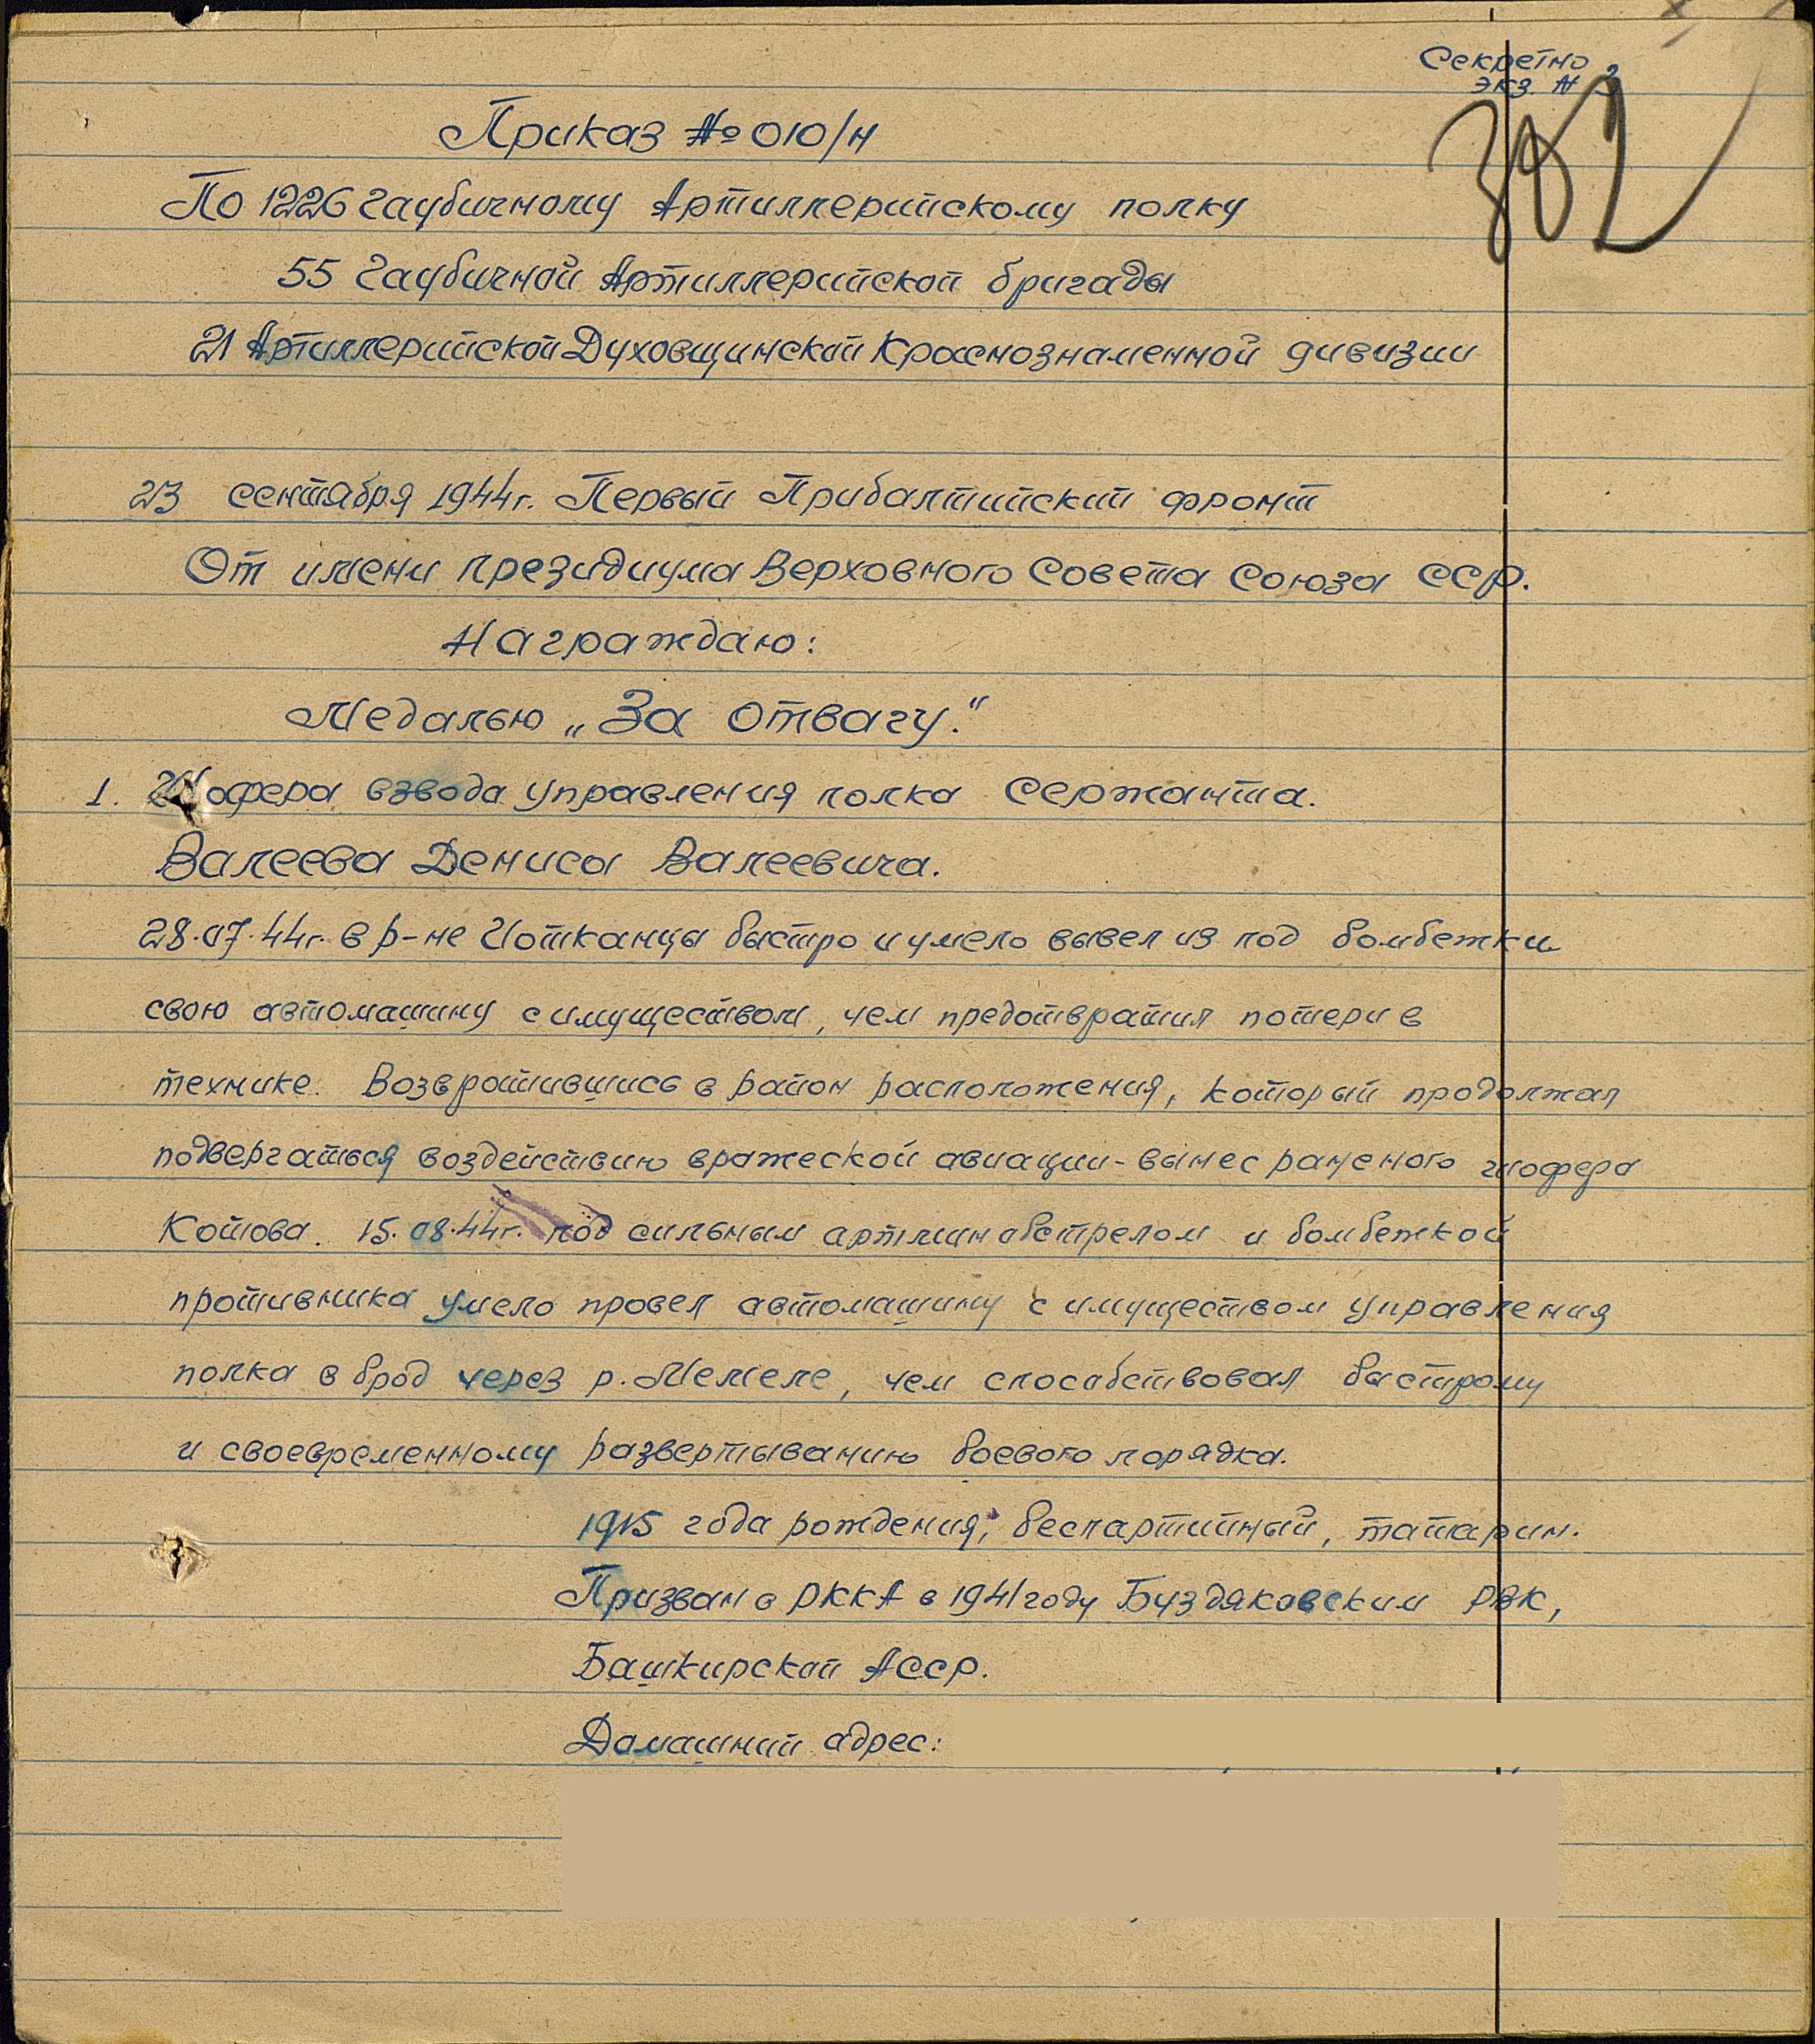 Секретно
экз. № 3
382
Приказ № 010/н
По 1226 Гаубичному Артиллерийскому полку
55 Гаубичной Артиллерийской бригады
21 Артиллерийской Духовщинской Краснознаменной дивизии
23 сентября 1944г. Первый Прибалтийский фронт
От имени президиума Верховного Совета Союза ССР.
Награждаю:
Медалью „За отвагу."
1. Шофера взвода управления полка Сержанта.
Валеева Дениса Валеевича.
28.07.44г. в р-не Иотканцы быстро и умело вывел из под бомбежки
свою автомашину с имуществом, чем предотвратил потери в
технике. Возвратившись в район расположения, который продолжал
подвергаться воздействию вражеской авиации - вынес раненого шофера
Котова. 15.08.44г. под сильным артминобстрелом и бомбежкой
противника умело провел автомашину с имуществом управления
полка в брод через р. Мемеле, чем способствовал быстрому
и своевременному развертыванию боевого порядка.
1915 года рождения, беспартийный, татарин.
Призван в РККА в 1941 году Буздяковским РВК,
Башкирской АССР.
Домашний адрес: